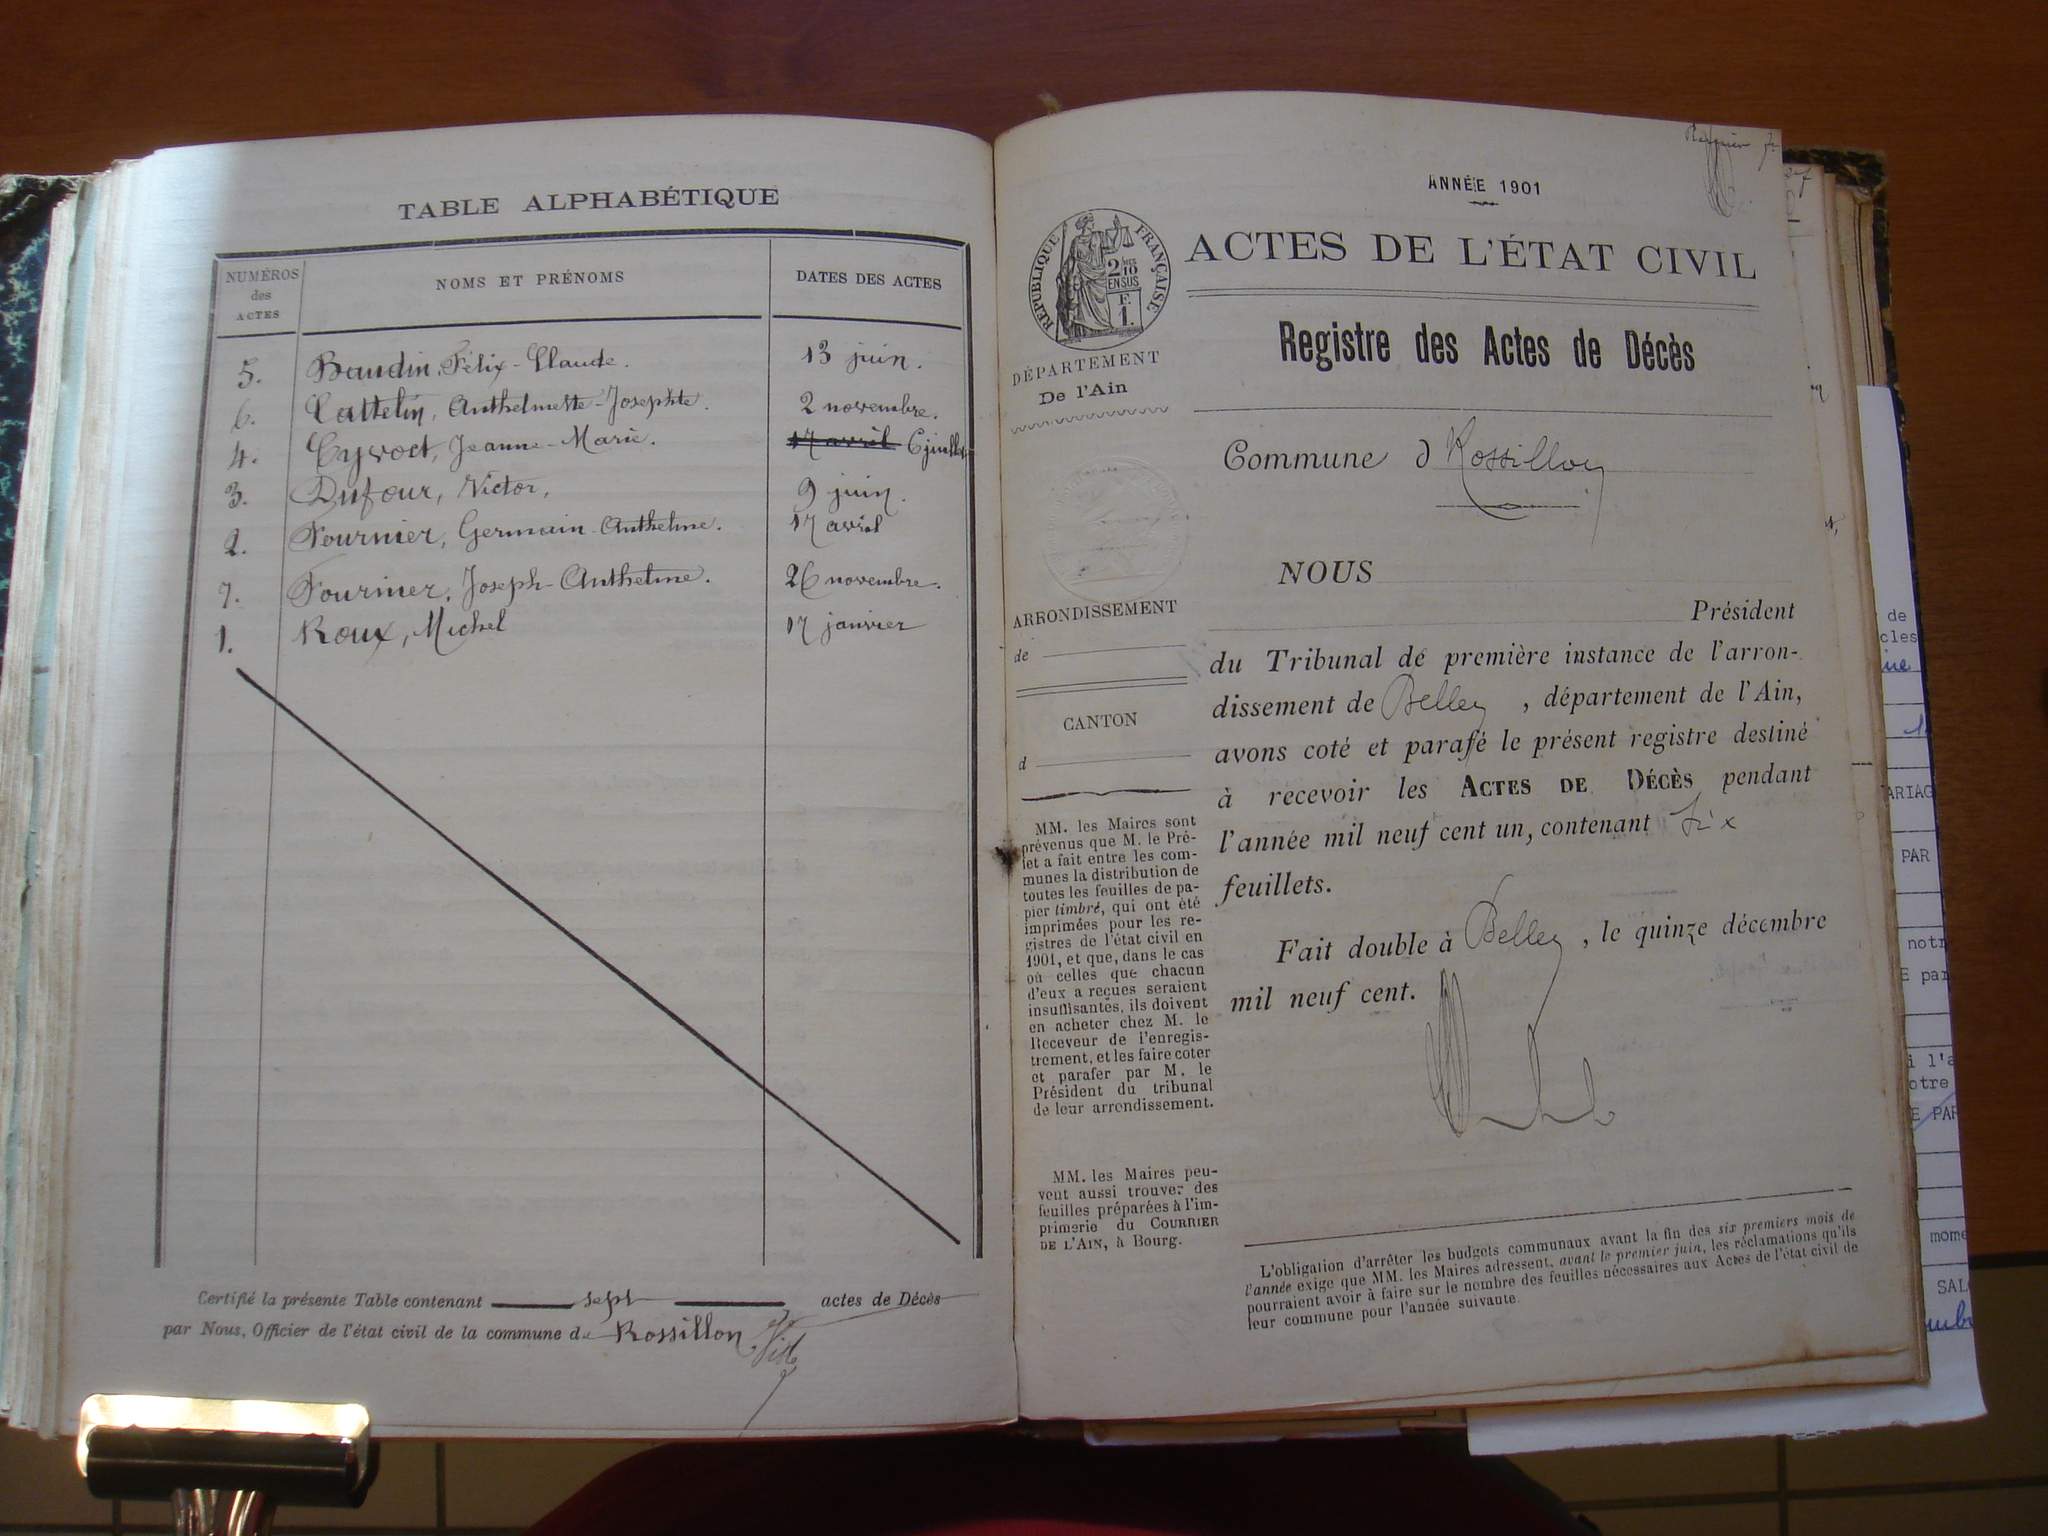 TABLE ALPHABÉTIQUE
NUMÉROS des ACTES NOMS ET PRÉNOMS DATES DES ACTES
5. Baudin, Félix-Claude. 13 juin.
6. Cattelin, Anthelmette-Josephte. 2 novembre.
4. Cyvoct, Jeanne-Marie. 17 avril 6 juillet
3. Dufour, Victor, 9 juin.
2. Fournier, Germain-Anthelme. 17 avril
7. Fournier, Joseph-Anthelme. 26 novembre.
1. Roux, Michel 17 janvier
Certifié la présente Table contenant sept actes de Décès
par Nous, Officier de l'état civil de la commune de Rossillon
ANNÉE 1901
RÉPUBLIQUE FRANÇAISE
2/10 EN SUS
F. 1.
ACTES DE L'ÉTAT CIVIL
DÉPARTEMENT
De l'Ain
Registre des Actes de Décès
Commune d Rossillon
ARRONDISSEMENT
de
CANTON
d
MM. les Maires sont
prévenus que M. le Pré-
fet a fait entre les com-
munes la distribution de
toutes les feuilles de pa-
pier timbré, qui ont été
imprimées pour les re-
gistres de l'état civil en
1901, et que, dans le cas
où celles que chacun
d'eux a reçues seraient
insuffisantes, ils doivent
en acheter chez M. le
Receveur de l'enregis-
trement, et les faire coter
et parafer par M. le
Président du tribunal
de leur arrondissement.
MM. les Maires peu-
vent aussi trouver des
feuilles préparées à l'im-
primerie du COURRIER
DE L'AIN, à Bourg.
NOUS
Président
du Tribunal de première instance de l'arron-
dissement de Belley, département de l'Ain,
avons coté et parafé le présent registre destiné
à recevoir les ACTES DE DÉCÈS pendant
l'année mil neuf cent un, contenant six
feuillets.
Fait double à Belley, le quinze décembre
mil neuf cent.
L'obligation d'arrêter les budgets communaux avant la fin des six premiers mois de
l'année exige que MM. les Maires adressent, avant le premier juin, les réclamations qu'ils
pourraient avoir à faire sur le nombre des feuilles nécessaires aux Actes de l'état civil de
leur commune pour l'année suivante.
de
cles
ARIAG
PAR
notr
E par
i l'a
otre
E PAR
mome
SAL